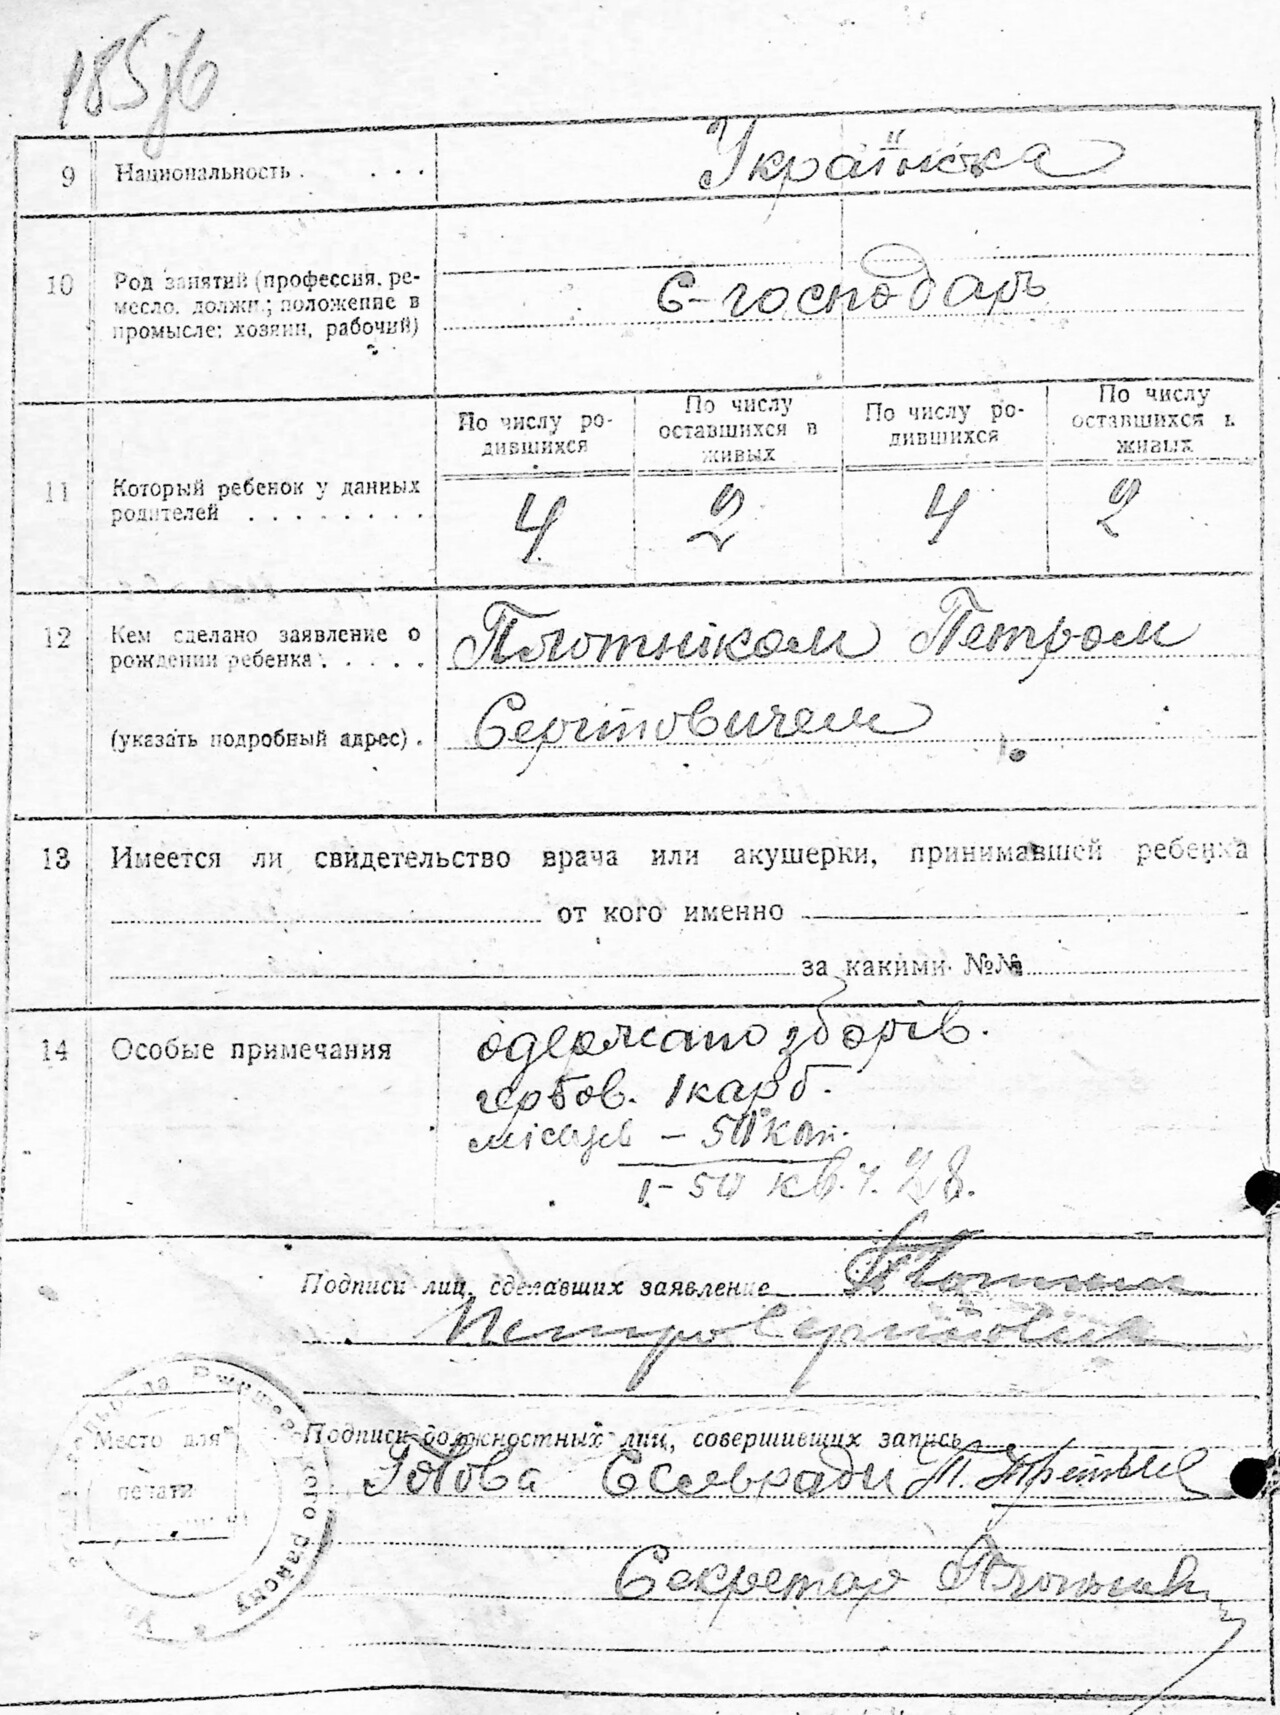 185
9 Национальность . . . . Українска
10 Род занятий (профессия, ре-
месло, должн.; положение в
промысле: хозяин, рабочий)
С-господарь
По числу ро-
дившихся
По числу
оставшихся в
живых
По числу ро-
дившихся
По числу
оставшихся в
живых
11 Который ребенок у данных
родителей . . . . . . . .
4 2 4 2
12 Кем сделано заявление о
рождении ребенка . . . . .
(указать подробный адрес) .
Плотніком Петром
Сергїовичем
13 Имеется ли свидетельство врача или акушерки, принимавшей ребенка
от кого именно
за какими №№
14 Особые примечания
одержано зборів.
гербов. 1 карб.
місцев – 50 коп.
1 – 50 кв. ч. 28.
Подписи лиц, сделавших заявление
Петро Сергійович
Подписи должностных лиц, совершивших запись
Голова Сельради П.
Секретар
Место для
печати